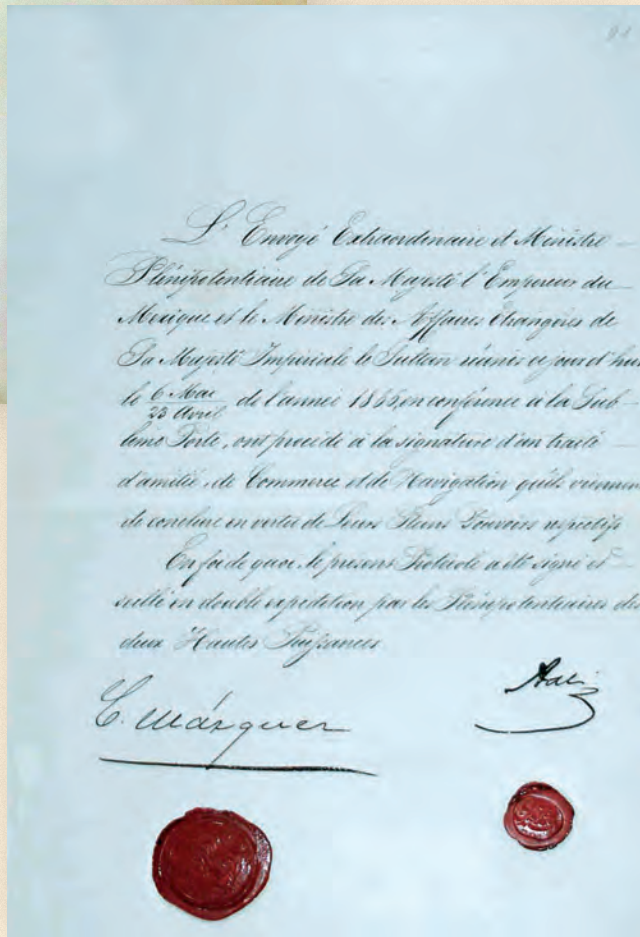 L'Envoyé Extraordinaire et Ministre
Plénipotentiaire de Sa Majesté l'Empereur du
Mexique et le Ministre des Affaires étrangères de
Sa Majesté Impériale le Sultan réunis ce jourd'hui
le 6 Mai
23 Avril de l'année 1865, en conférence à la Sub-
lime Porte, ont procédé à la signature d'un traité
d'amitié, de Commerce et de Navigation qu'ils viennent
de conclure en vertu de Leurs Pleins Pouvoirs respectifs
En foi de quoi le présent Protocole a été signé et
scellé en double expédition par les Plénipotentiaires des
deux Hautes Puissances
C. Márquez
Aali